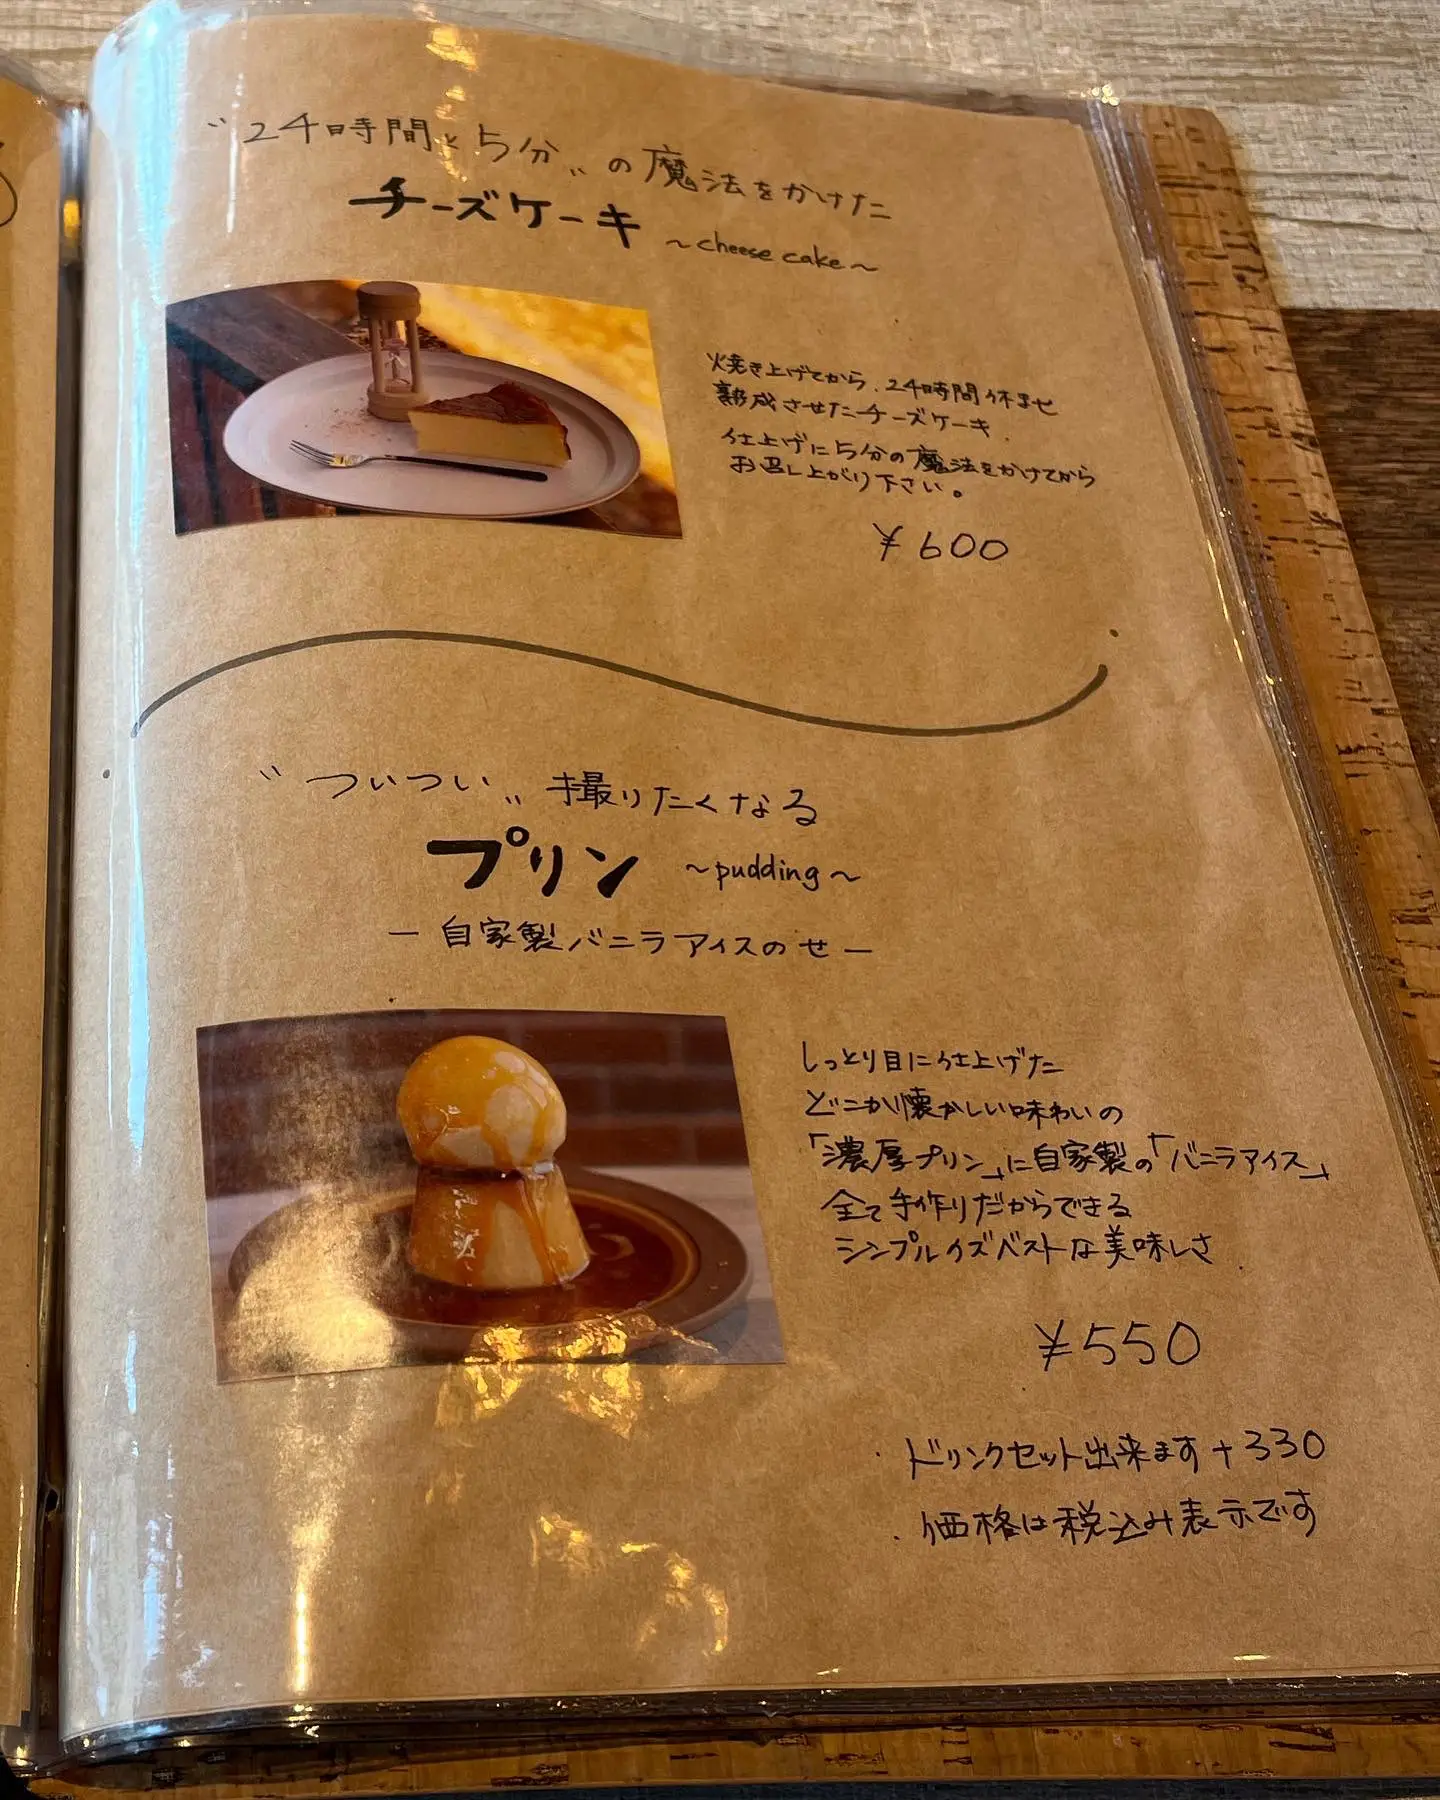 "24時間と5分"の魔法をかけた
チーズケーキ ~cheese cake~
焼き上げてから、24時間休ませ
熟成させたチーズケーキ.
仕上げに5分の魔法をかけてから
お召し上がり下さい。
¥600
"ついつい"撮りたくなる
プリン ~pudding~
-自家製バニラアイスのせ-
しっとり目に仕上げた
どこか懐かしい味わいの
「濃厚プリン」に自家製の「バニラアイス」
全て手作りだからできる
シンプルイズベストな美味しさ.
¥550
・ドリンクセット出来ます+330
・価格は税込み表示です